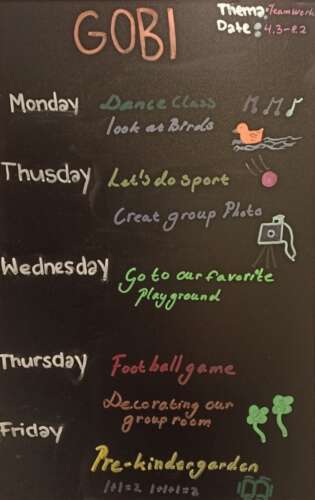 GOBI
Thema: Teamwork
Date: 4.3-8.2
Monday Dance Class
look at Birds
Thusday Let's do sport
Creat group Photo
Wednesday Go to our favorite
Playground
Thursday Football game
Decorating our
group room
Friday
Pre-kindergarden
1+1=2 1+1+1=2